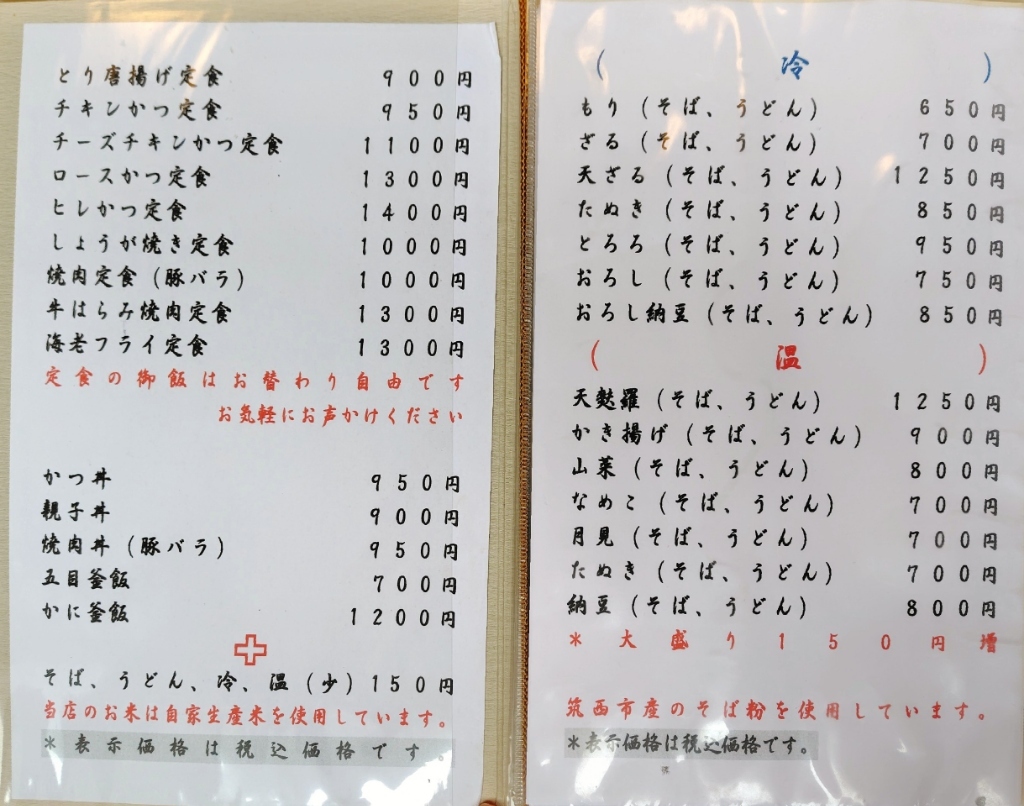 とり唐揚げ定食 900円
チキンかつ定食 950円
チーズチキンかつ定食 1100円
ロースかつ定食 1300円
ヒレかつ定食 1400円
しょうが焼き定食 1000円
焼肉定食（豚バラ） 1000円
牛はらみ焼肉定食 1300円
海老フライ定食 1300円
定食の御飯はお替わり自由です
お気軽にお声かけください
かつ丼 950円
親子丼 900円
焼肉丼（豚バラ） 950円
五目釜飯 700円
かに釜飯 1200円
そば、うどん、冷、温（少）150円
当店のお米は自家生産米を使用しています。
＊表示価格は税込価格です。
（ 冷 ）
もり（そば、うどん） 650円
ざる（そば、うどん） 700円
天ざる（そば、うどん） 1250円
たぬき（そば、うどん） 850円
とろろ（そば、うどん） 950円
おろし（そば、うどん） 750円
おろし納豆（そば、うどん） 850円
（ 温 ）
天麩羅（そば、うどん） 1250円
かき揚げ（そば、うどん） 900円
山菜（そば、うどん） 800円
なめこ（そば、うどん） 700円
月見（そば、うどん） 700円
たぬき（そば、うどん） 700円
納豆（そば、うどん） 800円
＊大盛り150円増
筑西市産のそば粉を使用しています。
＊表示価格は税込価格です。